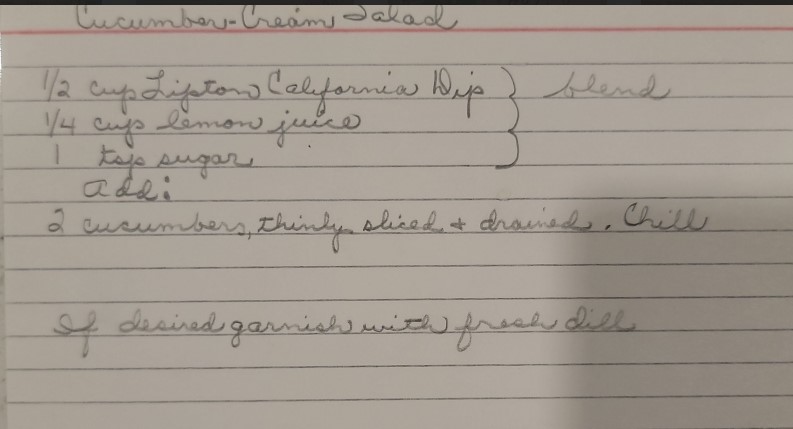 Cucumber-Cream Salad
1/2 cup Lipton California Dip } blend
1/4 cup lemon juice
1 tsp sugar
add:
2 cucumbers, thinly sliced & drained. Chill
If desired garnish with fresh dill